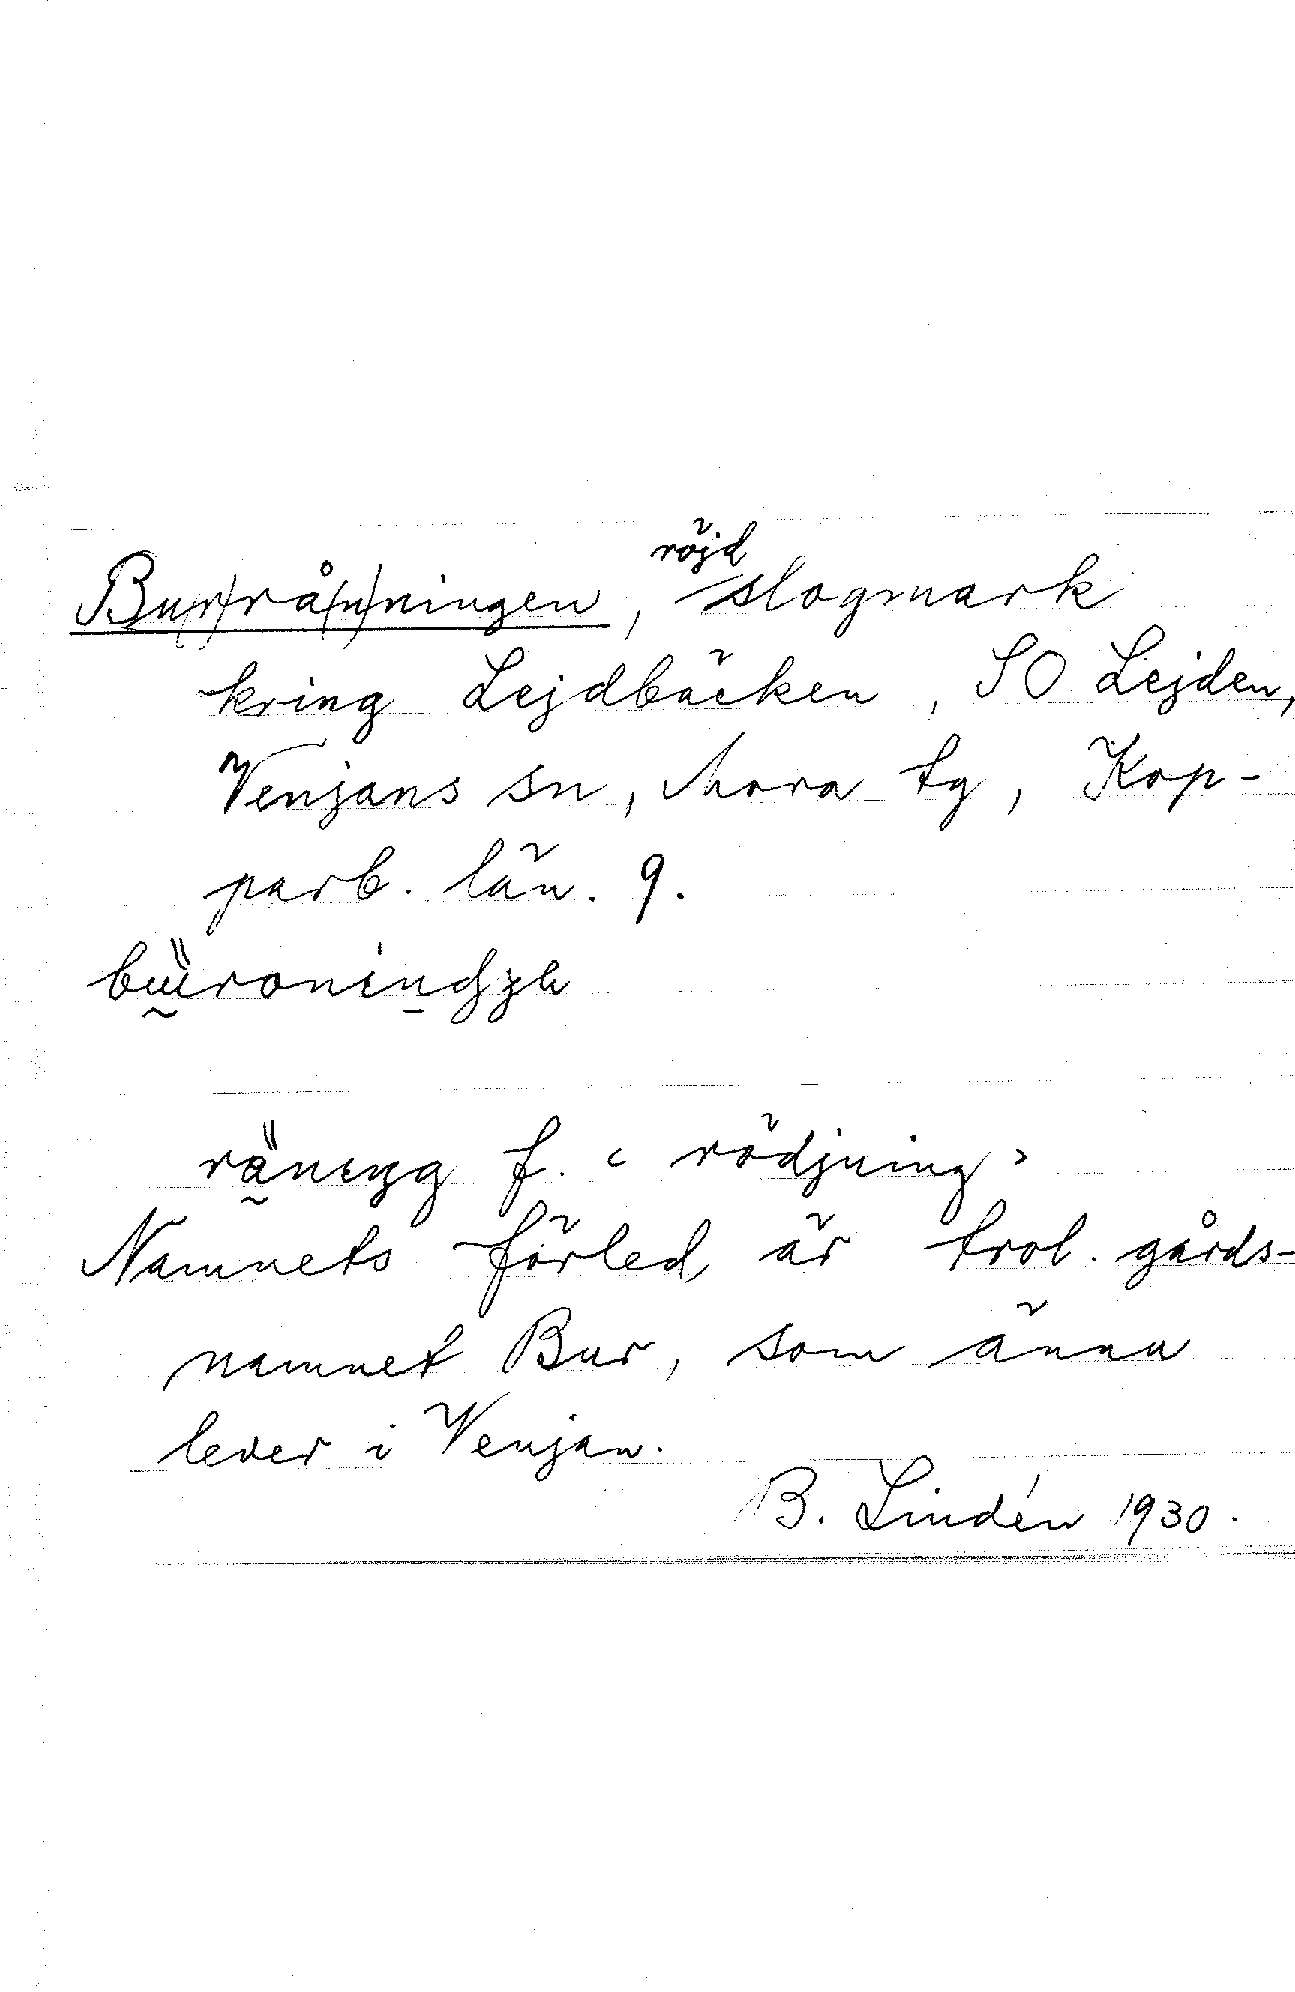 Bu(r)rå(n)ningen, röjd slogmark
kring Lejdbäcken, SO Lejden,
Venjans sn, Mora tg, Kop-
parb. län. 9.
f. ‹ rödjning ›
Namnets förled är trol. gårds-
namnet Bur, som ännu
lever i Venjan.
B. Lindén 1930.